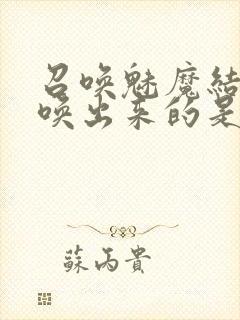 召唤魅魔结
唤出来的是
蘇丙貴